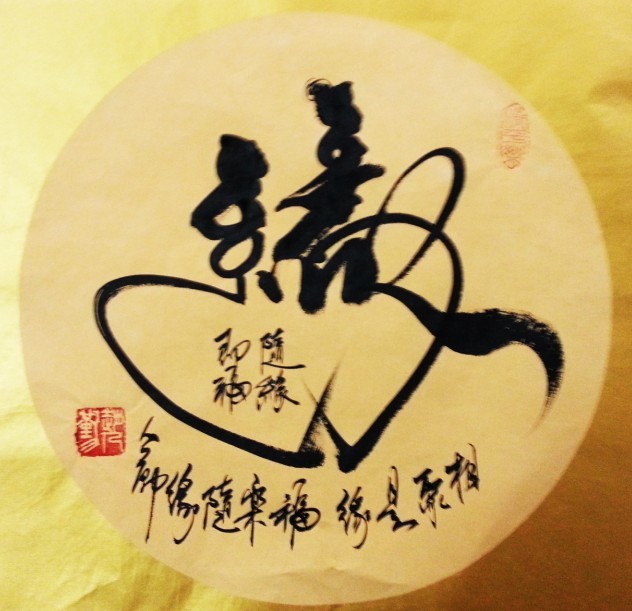 緣
隨緣
即福
相聚是緣 福樂隨緣